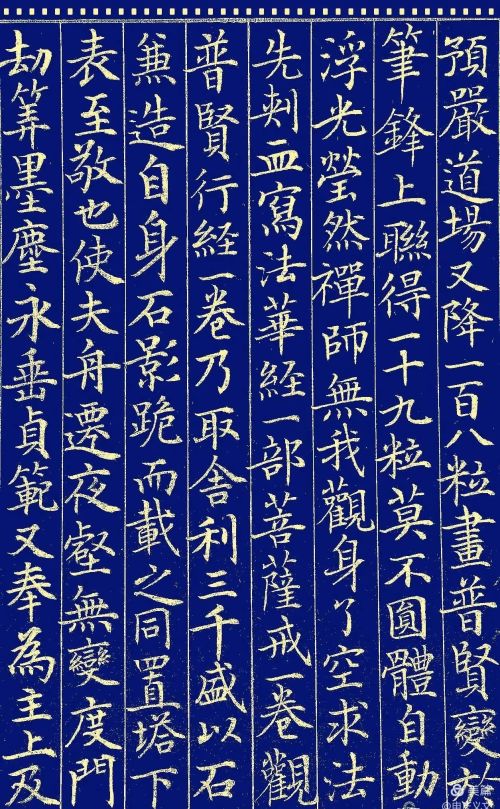 預嚴道場又降一百八粒畫普賢變於
筆鋒上聯得一十九粒莫不圓體自動
浮光瑩然禪師無我觀身了空求法
先刺血寫法華經一部菩薩戒一卷觀
普賢行経一卷乃取舎利三千盛以石
兼造自身石影跪而載之同置塔下
表至敬也使夫舟遷夜壑無變度門
劫筭墨塵永垂貞範又奉為主上及